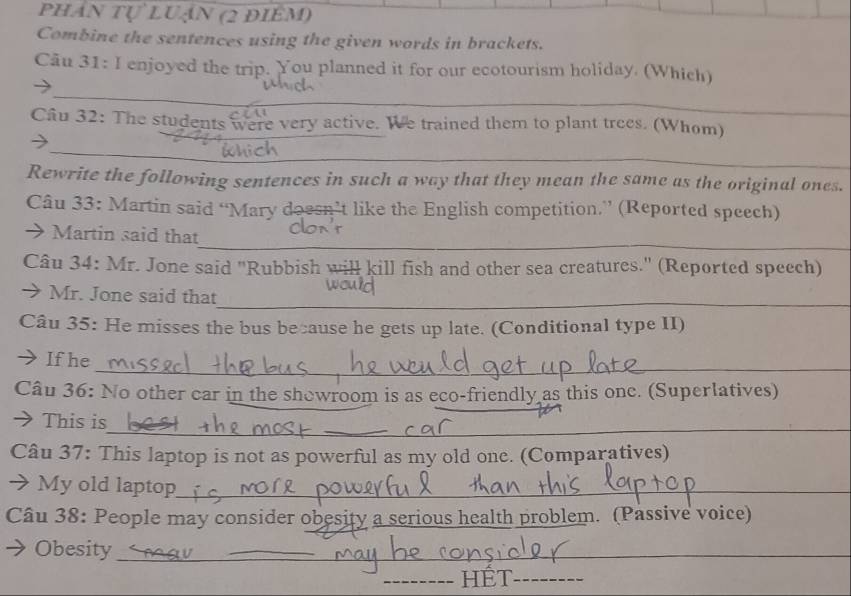 PHẦN TỰ LUẬN (2 ĐIỂM)
Combine the sentences using the given words in brackets.
Câu 31: I enjoyed the trip. You planned it for our ecotourism holiday. (Which)
which
→
Câu 32: The students were very active. We trained them to plant trees. (Whom)
which
→
Rewrite the following sentences in such a way that they mean the same as the original ones.
Câu 33: Martin said “Mary doesn't like the English competition.” (Reported speech)
don't
→ Martin said that
Câu 34: Mr. Jone said "Rubbish will kill fish and other sea creatures." (Reported speech)
would
→ Mr. Jone said that
Câu 35: He misses the bus because he gets up late. (Conditional type II)
→ If he missed the bus, he would get up late
Câu 36: No other car in the showroom is as eco-friendly as this one. (Superlatives)
→ This is best the most ____ car
Câu 37: This laptop is not as powerful as my old one. (Comparatives)
→ My old laptop is more powerful than this laptop
Câu 38: People may consider obesity a serious health problem. (Passive voice)
→ Obesity may ____ may be consider
-------- HẾT--------